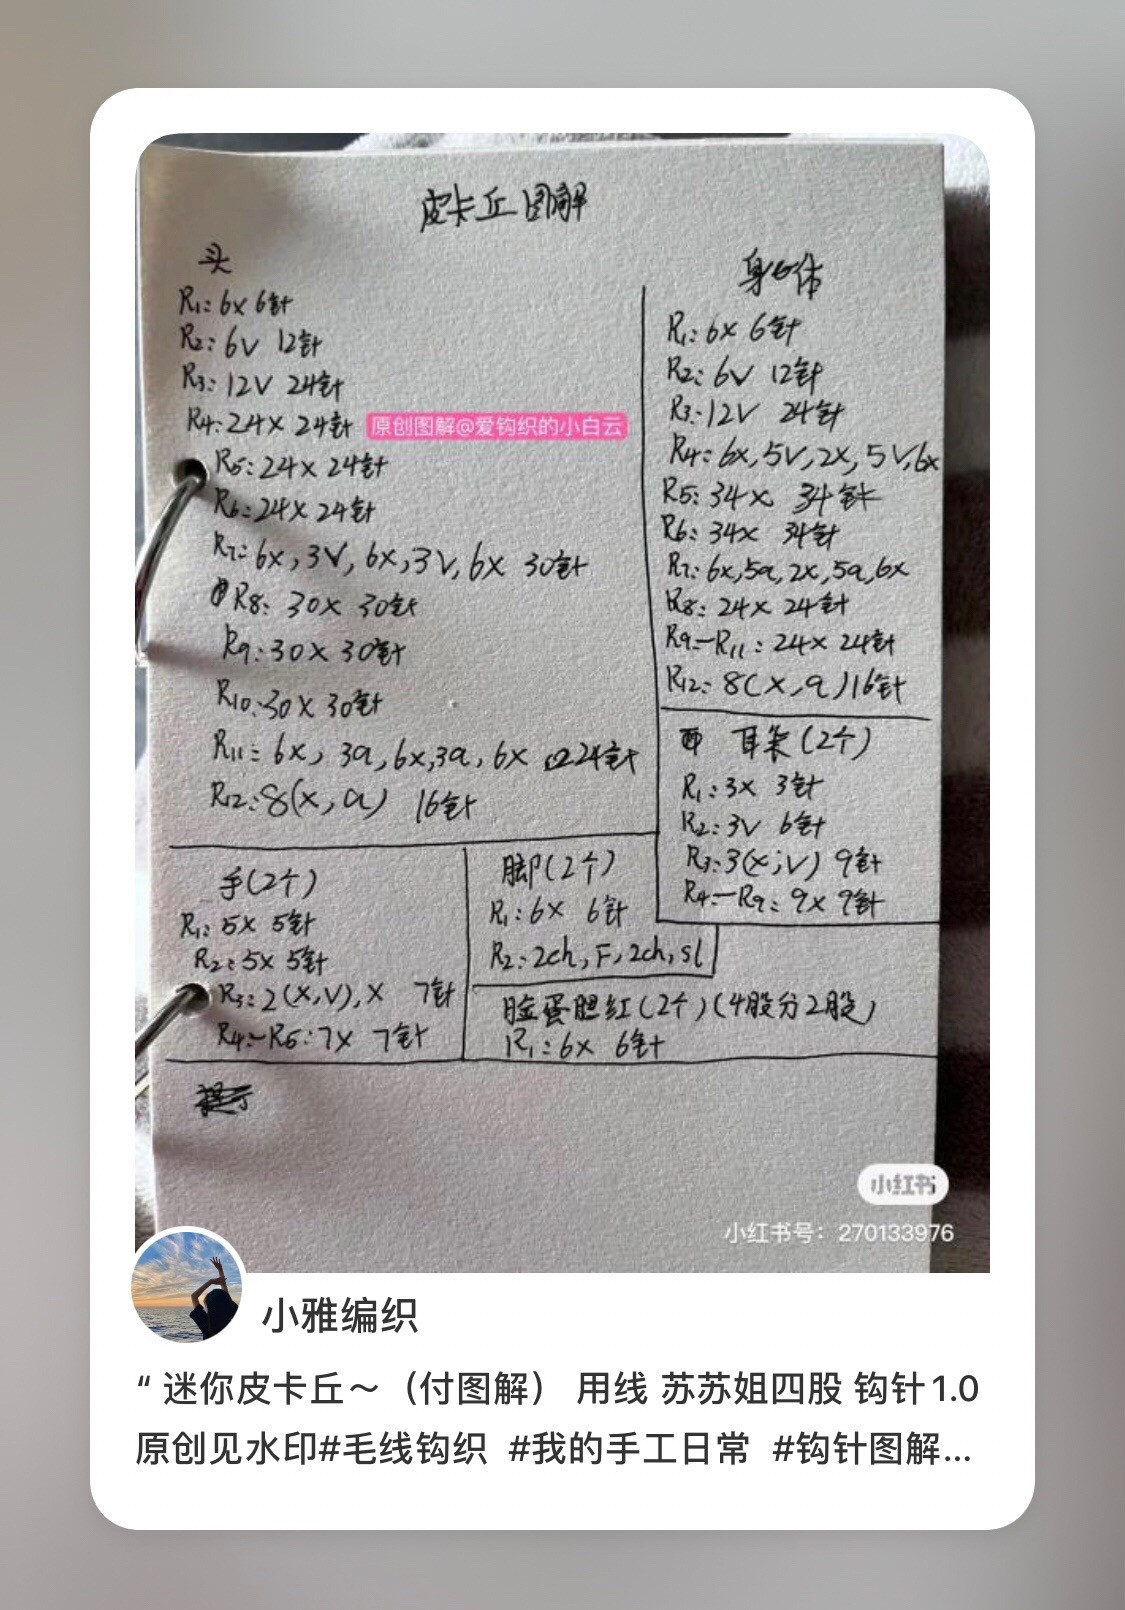 皮卡丘图解
头
R1: 6x 6针
R2: 6V 12针
R3: 12V 24针
R4: 24x 24针
原创图解@爱钩织的小白云
R5: 24x 24针
R6: 24x 24针
R7: 6x, 3V, 6x, 3V, 6x 30针
R8: 30x 30针
R9: 30x 30针
R10: 30x 30针
R11: 6x, 3a, 6x, 3a, 6x 24针
R12: 8(x, a) 16针
身体
R1: 6x 6针
R2: 6V 12针
R3: 12V 24针
R4: 6x, 5V, 2x, 5V, 6x
R5: 34x 34针
R6: 34x 34针
R7: 6x, 5a, 2x, 5a, 6x
R8: 24x 24针
R9—R11: 24x 24针
R12: 8(x, a) 16针
耳朵(2个)
R1: 3x 3针
R2: 3V 6针
R3: 3(x, V) 9针
R4—R9: 9x 9针
手(2个)
R1: 5x 5针
R2: 5x 5针
R3: 2(x, V), x 7针
R4—R5: 7x 7针
脚(2个)
R1: 6x 6针
R2: 2ch, F, 2ch, sl
脸蛋腮红(2个)(4股分2股)
R1: 6x 6针
小红书
小红书号: 270133976
小雅编织
“ 迷你皮卡丘～（付图解） 用线 苏苏姐四股 钩针1.0
原创见水印#毛线钩织 #我的手工日常 #钩针图解...